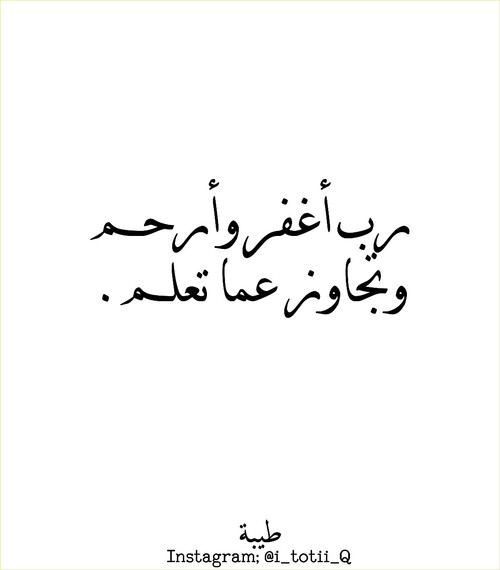 رب أغفر وأرحم
وتجاوز عما تعلم .
طيبة
Instagram; @i_totii_Q